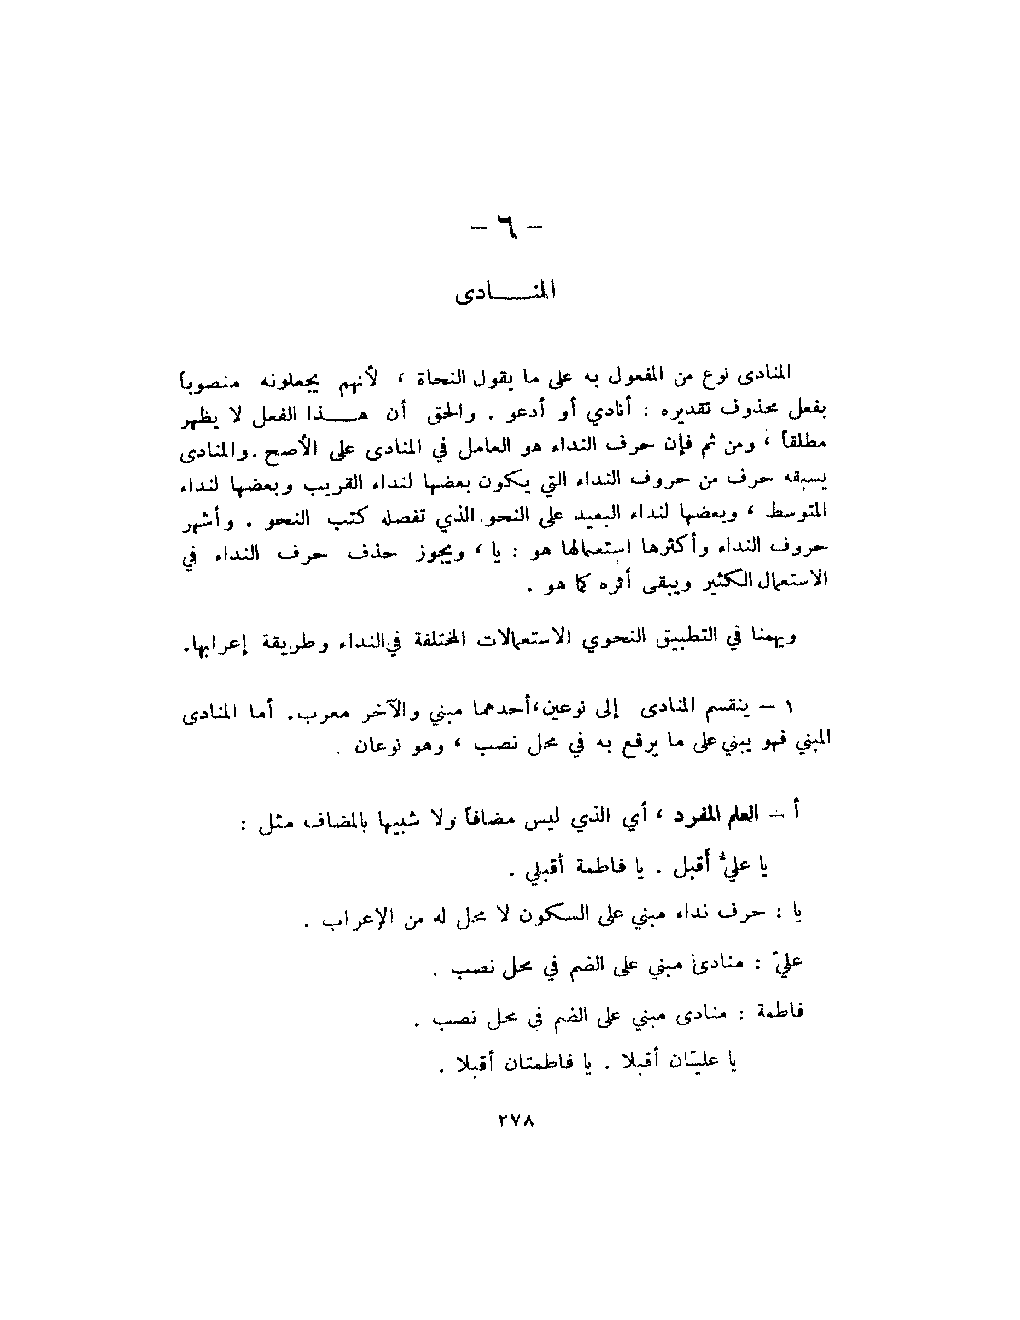 - ٦ -
المنـــادى
المنادى نوع من المفعول به على ما يقول النحاة ، لأنهم يجعلونه منصوباً
بفعل محذوف تقديره : أنادي أو أدعو . والحق أن هـــذا الفعل لا يظهر
مطلقاً ، ومن ثم فإن حرف النداء هو العامل في المنادى على الأصح . والمنادى
يسبقه حرف من حروف النداء التي يكون بعضها لنداء القريب وبعضها لنداء
المتوسط ، وبعضها لنداء البعيد على النحو الذي تفصله كتب النحو . وأشهر
حروف النداء وأكثرها استعمالها هو : يا ، ويجوز حذف حرف النداء في
الاستعمال الكثير ويبقى أثره كما هو .
ويهمنا في التطبيق النحوي الاستعمالات المختلفة في النداء وطريقة إعرابها.
١ - ينقسم المنادى إلى نوعين،أحدهما مبني والآخر معرب. أما المنادى
المبني فهو يبني على ما يرفع به في محل نصب ، وهو نوعان .
أ - العلم المفرد ، أي الذي ليس مضافاً ولا شبيها بالمضاف مثل :
يا عليُّ أَقبل . يا فاطمة أقبلي .
يا : حرف نداء مبني على السكون لا محل له من الإعراب .
عليّ : منادىً مبني على الضم في محل نصب .
فاطمة : منادى مبني على الضم في محل نصب .
يا عليّان أقبلا . يا فاطمتان أقبلا .
٢٧٨